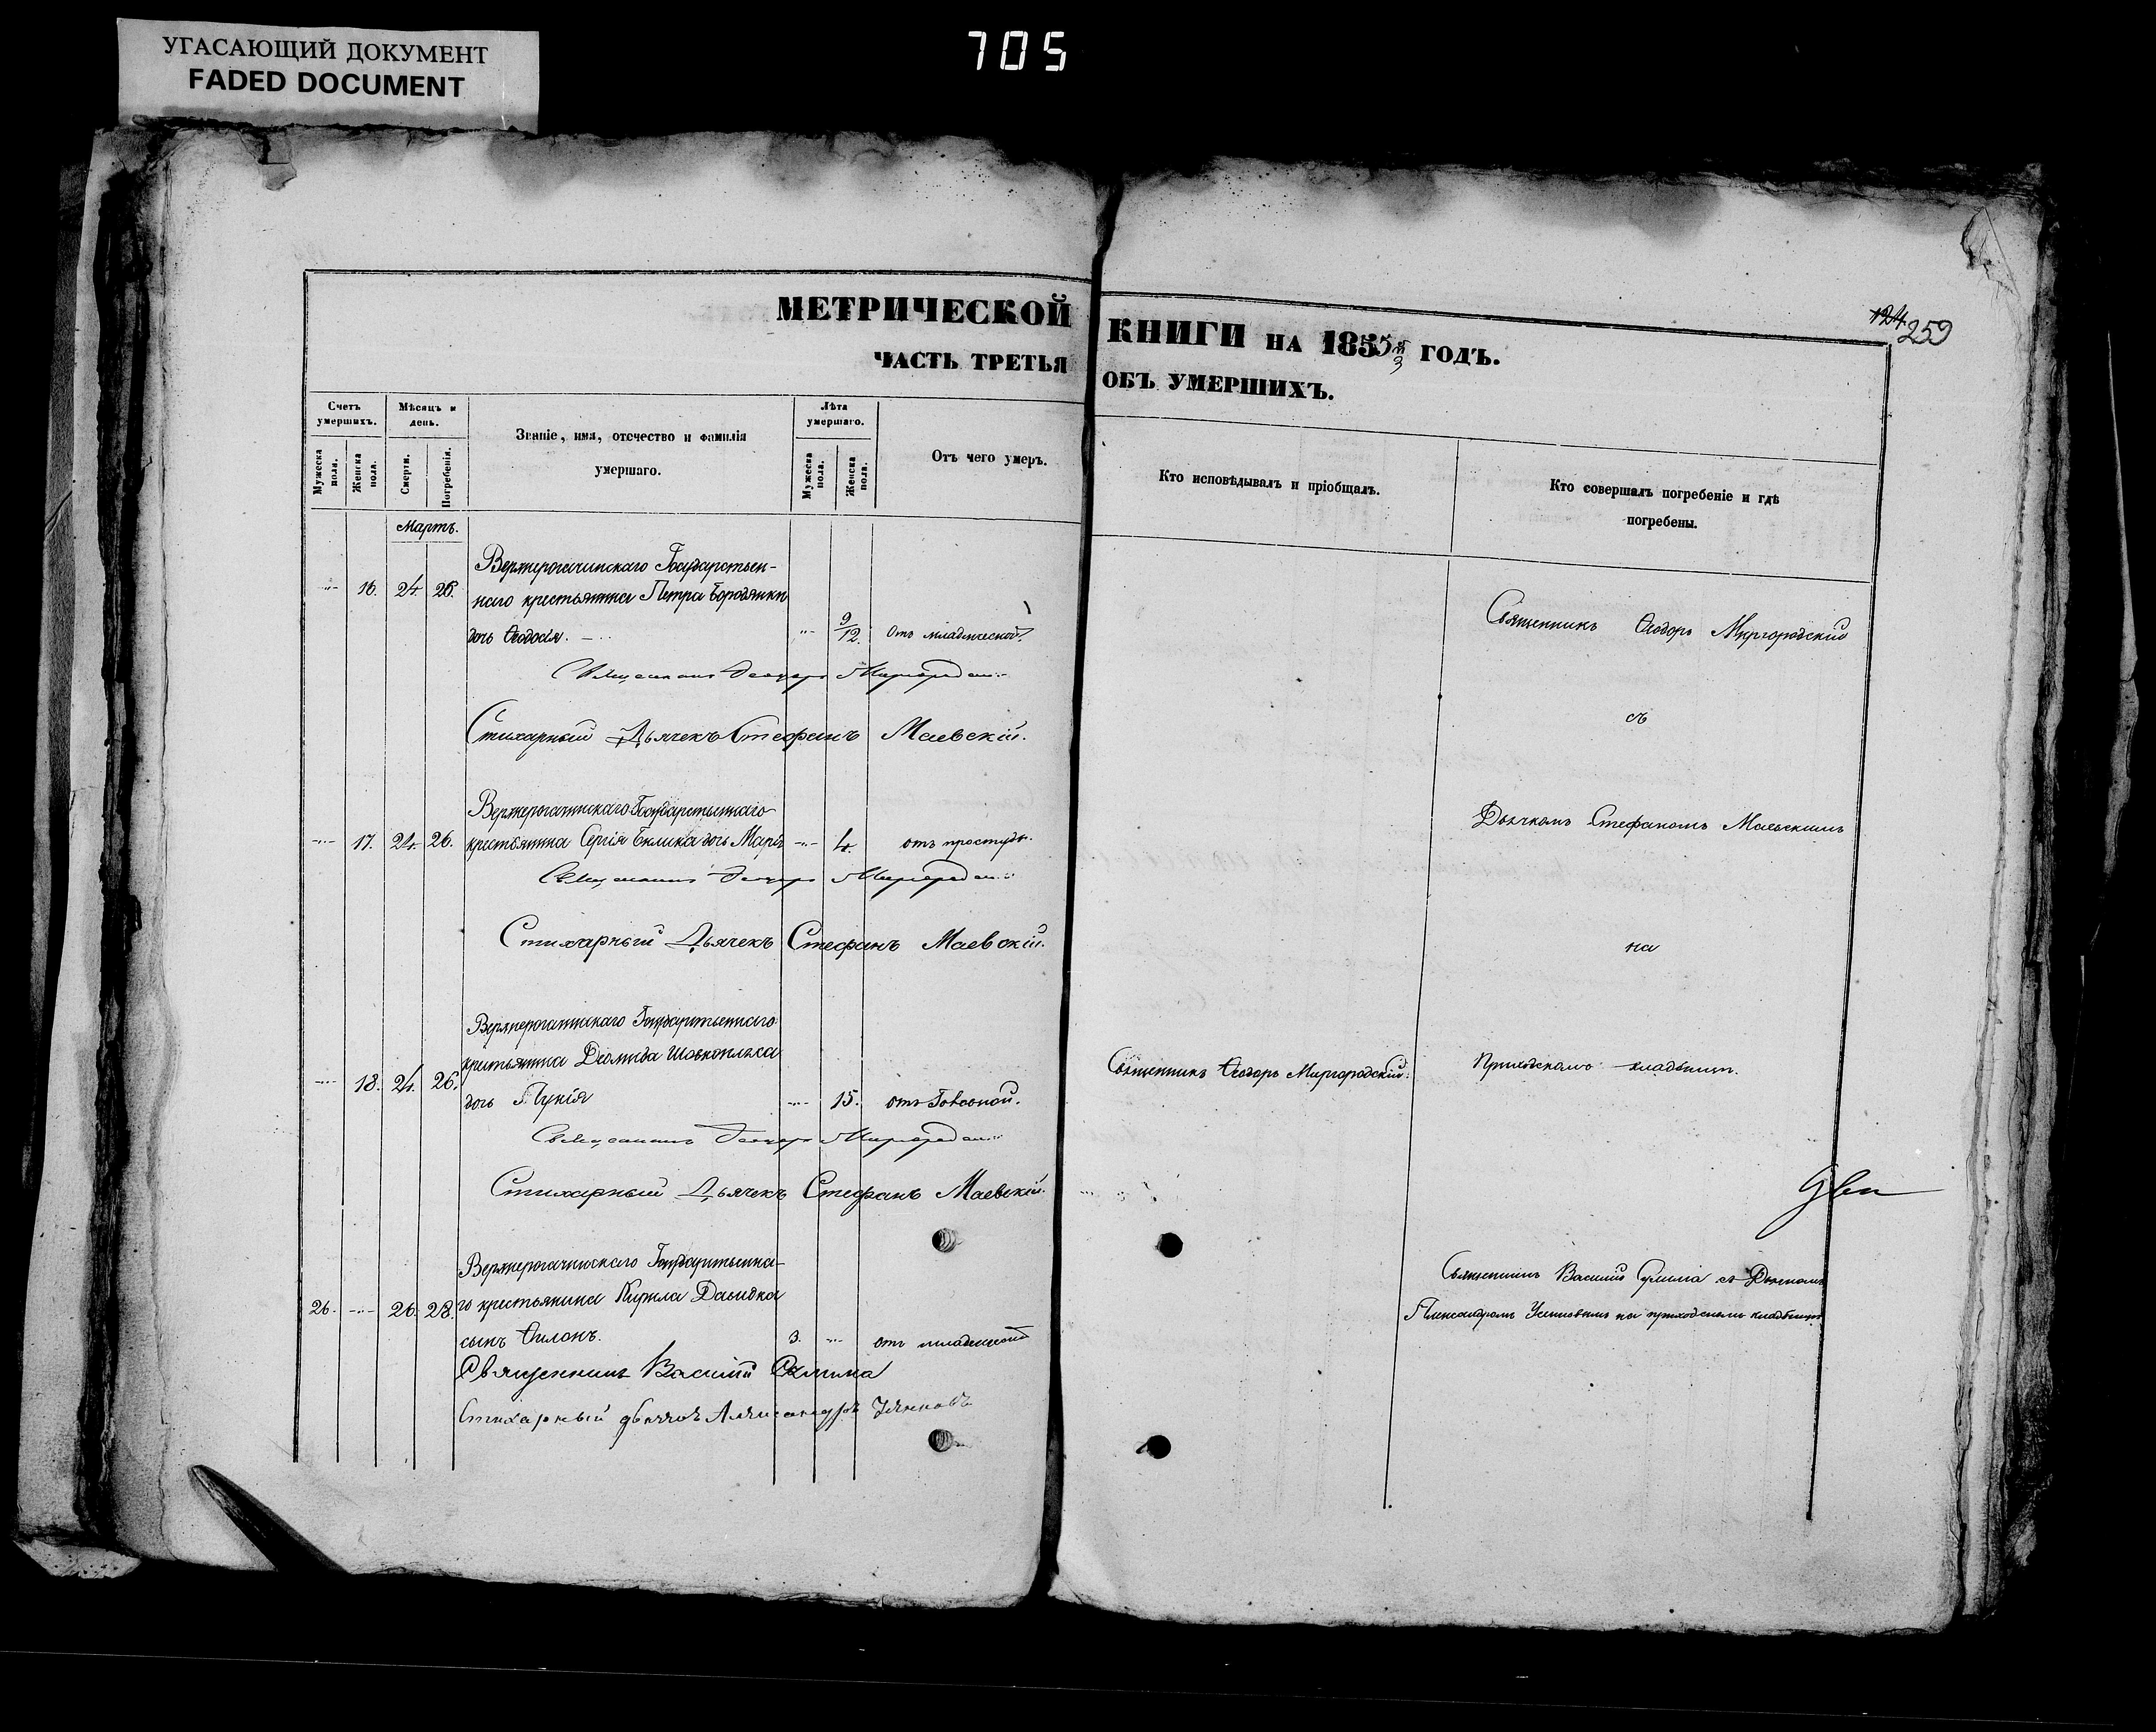 УГАСАЮЩИЙ ДОКУМЕНТ
FADED DOCUMENT
705
124 259
МЕТРИЧЕСКОЙ КНИГИ НА 1855й ГОДЪ.
ЧАСТЬ ТРЕТЬЯ ОБЪ УМЕРШИХЪ.
Счетъ умершихъ.
Мужеска пола.
Женска пола.
Мѣсяцъ и день.
Смерти.
Погребенія.
Званіе, имя, отечество и фамилія
умершаго.
Лѣта умершаго.
Мужеска пола.
Женска пола.
Отъ чего умеръ.
Кто исповѣдывалъ и пріобщалъ.
Кто совершалъ погребеніе и гдѣ
погребены.
Мартъ.
Верхнерогачинскаго Государствен-
16. 24. 26. наго крестьянина Петра Бородянки
дочь Ѳеодосія. 9/12. отъ младенческой
Священникъ Ѳеодоръ Миргородскій
Священникъ Ѳеодоръ Миргородскій
Стихарный Дьячекъ Стефанъ Маевскій.
съ
Верхнерогачинскаго Государственнаго
17. 24. 26. крестьянина Сергія Билика дочь Марія 4. отъ простуды.
Дьячкомъ Стефаномъ Маевскимъ
Священникъ Ѳеодоръ Миргородскій
Стихарный Дьячекъ Стефанъ Маевскій.
на
Верхнерогачинскаго Государственнаго
крестьянина Деомида
18. 24. 26. дочь Лукія 15. отъ
Священникъ Ѳеодоръ Миргородскій.
Приходскомъ кладбищѣ.
Священникъ Ѳеодоръ Миргородскій
Стихарный Дьячекъ Стефанъ Маевскій.
Верхнерогачинскаго Государственна-
26. 26. 28. го крестьянина Кирила Давидка
сынъ Филонъ. 3. отъ младенческой
Священникъ Василій съ Дьячкомъ
Александромъ на приходскомъ кладбищѣ
Священникъ Василій
Стихарный дьячокъ Александръ